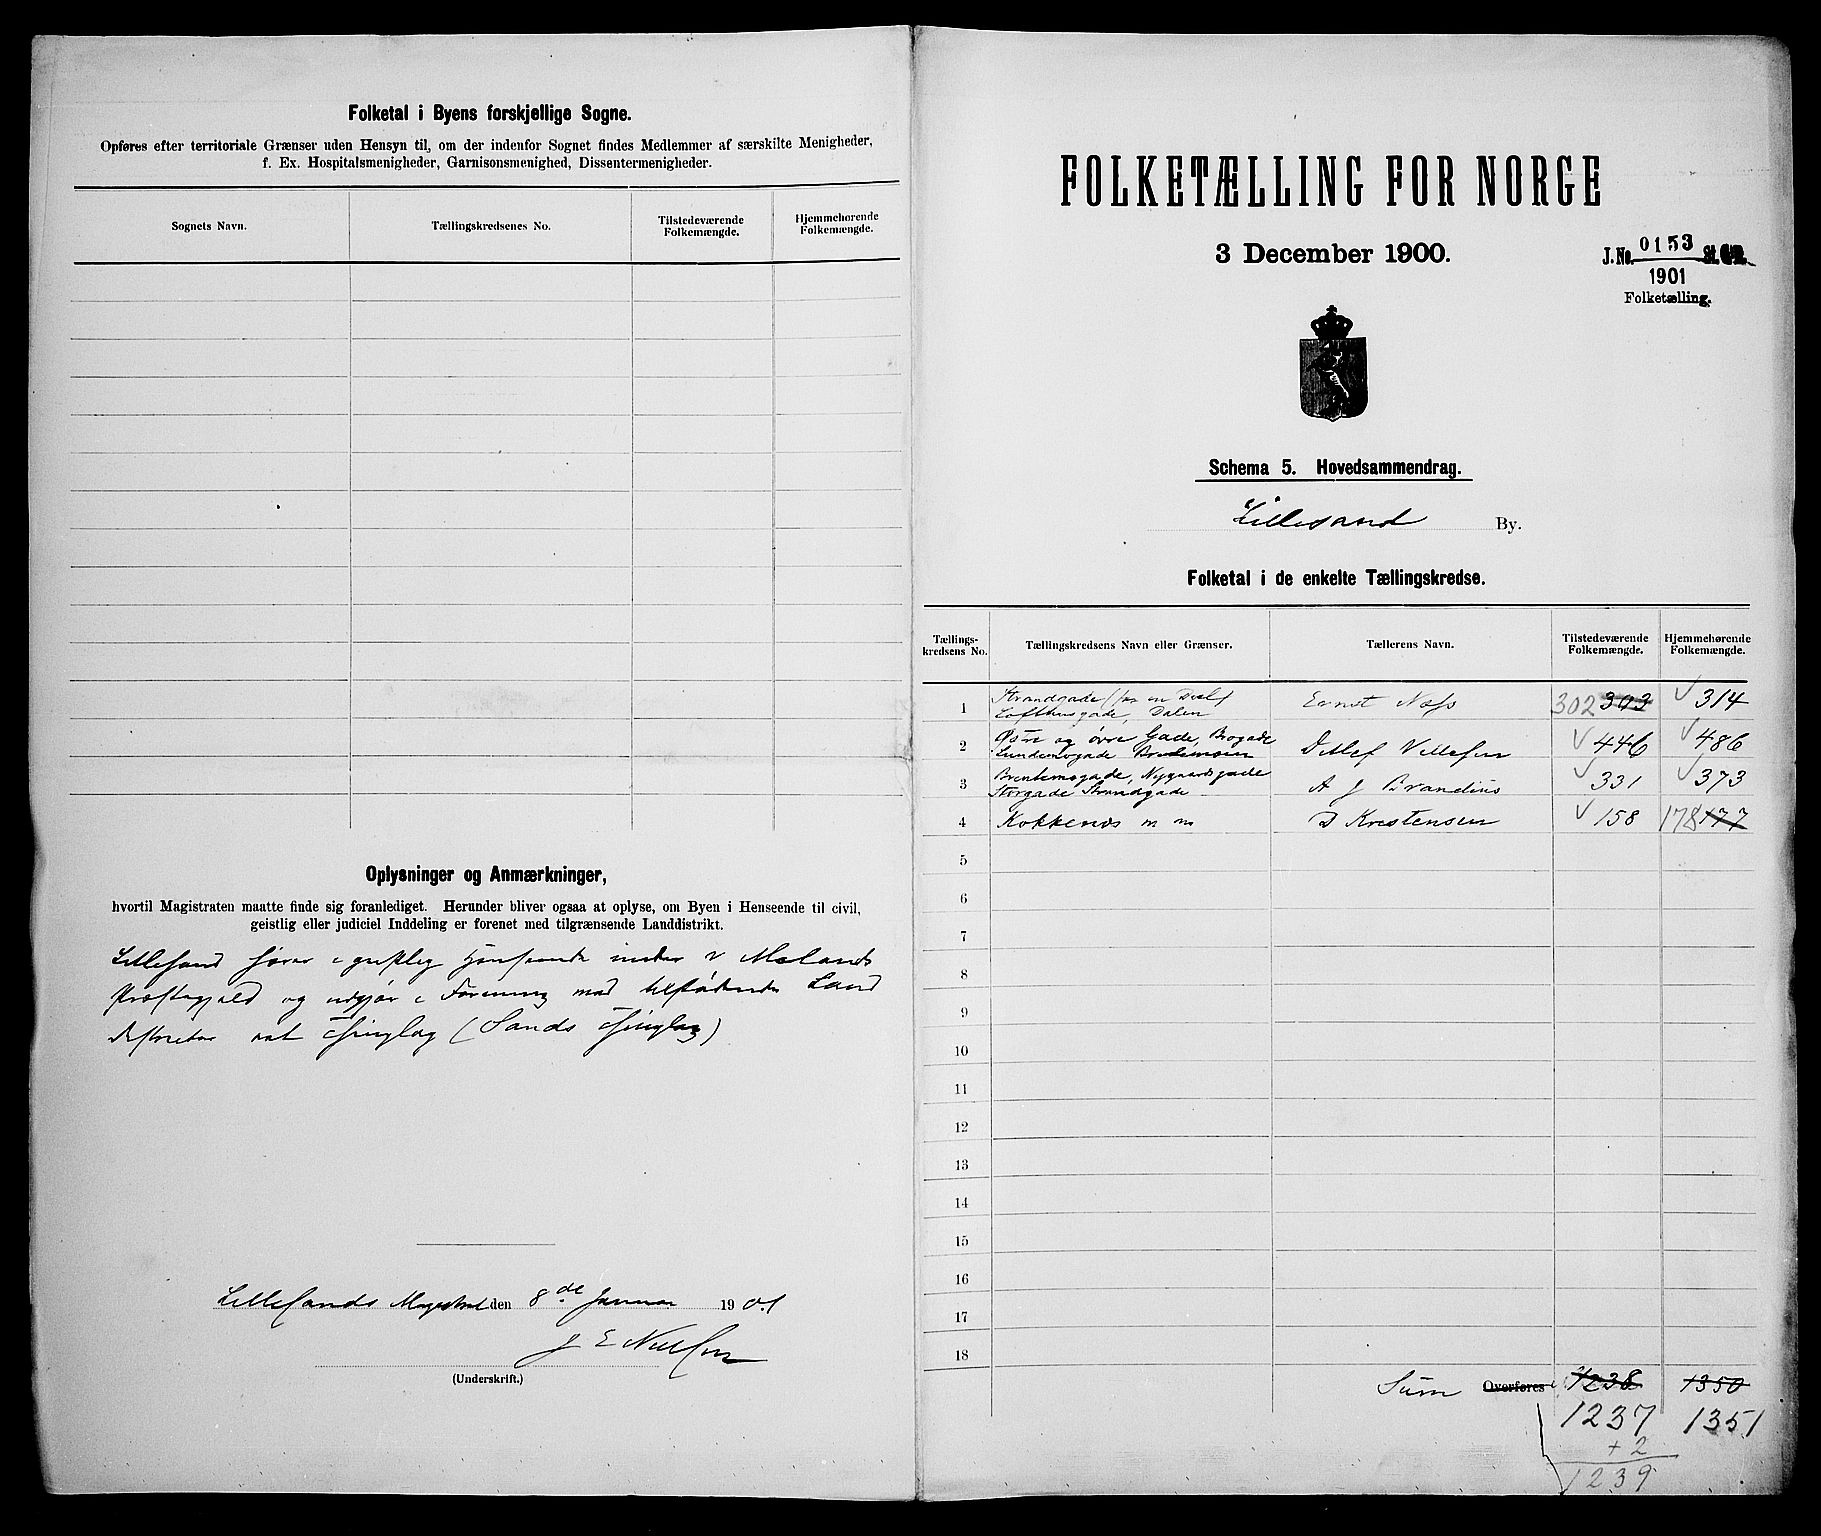 Folketal i Byens forskjellige Sogne.
Opføres efter territoriale Grænser uden Hensyn til, om der indenfor Sognet findes Medlemmer af særskilte Menigheder,
f. Ex. Hospitalsmenigheder, Garnisonsmenighed, Dissentermenigheder.
Sognets Navn. Tællingskredsenes No. Tilstedeværende Folkemængde. Hjemmehørende Folkemængde.
Oplysninger og Anmærkninger,
hvortil Magistraten maatte finde sig foranlediget. Herunder bliver ogsaa at oplyse, om Byen i Henseende til civil,
geistlig eller judiciel Inddeling er forenet med tilgrænsende Landdistrikt.
Lillesand hører i geistlig Henseende under V Molands
Præstegjeld og udgjør i Forening med tilstødende Land
distrikter eet Thinglag (Sands Thinglag)
Lillesands Magistrat den 8de Januar 1901
J E Nielsen
(Underskrift.)
FOLKETÆLLING FOR NORGE
3 December 1900.
J. No. 0153 St. C. B.
1901
Folketælling.
Schema 5. Hovedsammendrag.
Lillesand By.
Folketal i de enkelte Tællingskredse.
Tællings-kredsens No. Tællingskredsens Navn eller Grænser. Tællerens Navn. Tilstedeværende Folkemængde. Hjemmehørende Folkemængde.
1 Strandgade (for en Deel) Ernst Næss 302 303 314
Lofthusgade, Dalen
2 Østre og øvre Gade, Brogade Detlef Villefsen 446 486
Lundemogade
3 Brentemogade, Nygaardsgade A J Brandius 331 373
Storgade Strandgade
4 Kokkenes m m D Kristensen 158 178 177
5
6
7
8
9
10
11
12
13
14
15
16
17
18
Sum Overføres 1238 1350
1237 1351
+ 2
1239